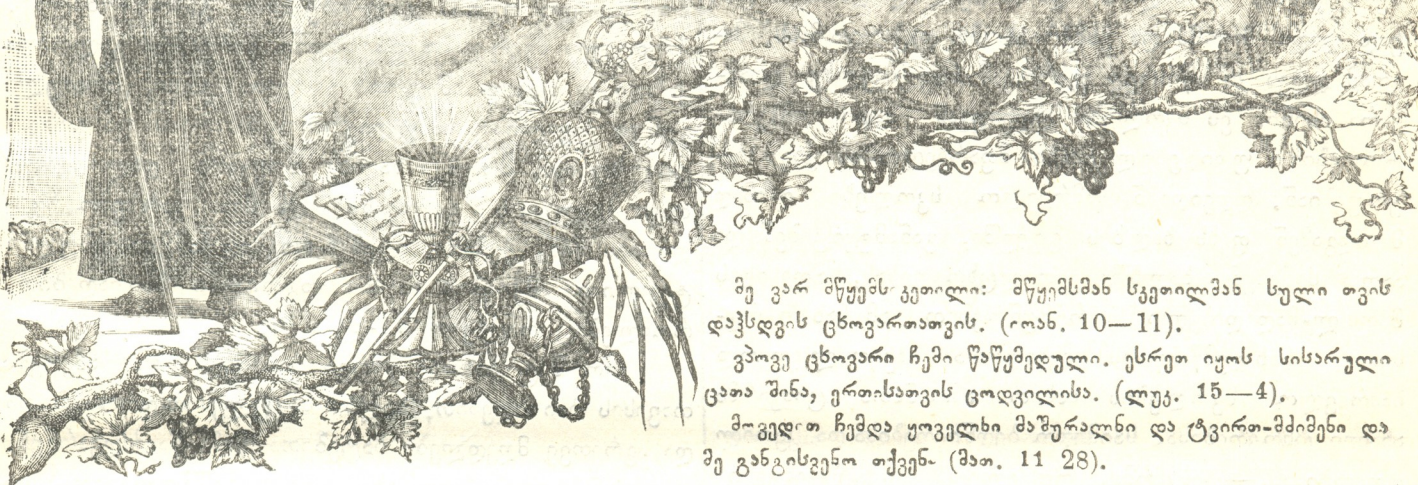 მე ვარ მწყემს კეთილი: მწყემსმან სკეთილმან სული თვის
დაჰსდგის ცხოვართათვის. (იოან. 10—11).
ვპოვე ცხოვარი ჩემი წაწყმედული. ესრეთ იყოს სიხარული
ცათა შინა, ერთისათვის ცოდვილისა. (ლუკ. 15—4).
მოვედით ჩემდა ყოველნი მაშურალნი და ტვირთ-მძიმენი და
მე განგისვენო თქვენ. (მათ. 11 28).